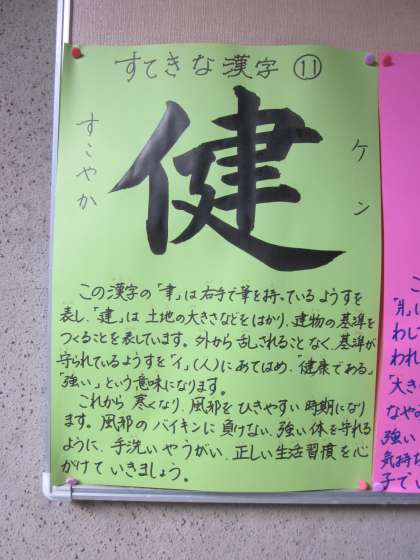 すてきな漢字 ⑪
すこやか
健
ケン
この漢字の「聿」は右手で筆を持っているようすを
表し、「建」は土地の大きさなどをはかり、建物の基準を
つくることを表しています。外から乱されることなく、基準が
守られているようすを「イ」(人)にあてはめ、「健康である」
「強い」という意味になります。
これから寒くなり、風邪をひきやすい時期になり
ます。風邪のバイキンに負けない、強い体を守れる
ように、手洗いやうがい、正しい生活習慣を心
がけていきましょう。
こ
わじ
われ
「大き
なやみ
強い
気持ち
子でい